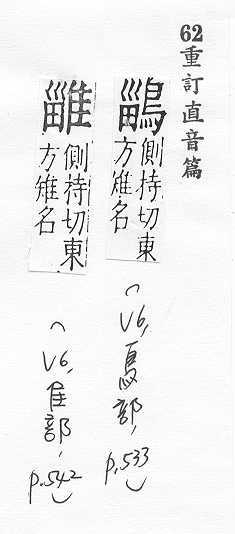 62重訂直音篇
鶅側持切東
方雉名
(V6,鳥部,p.533)
䧴側持切東
方雉名
(V6,隹部,p.542)